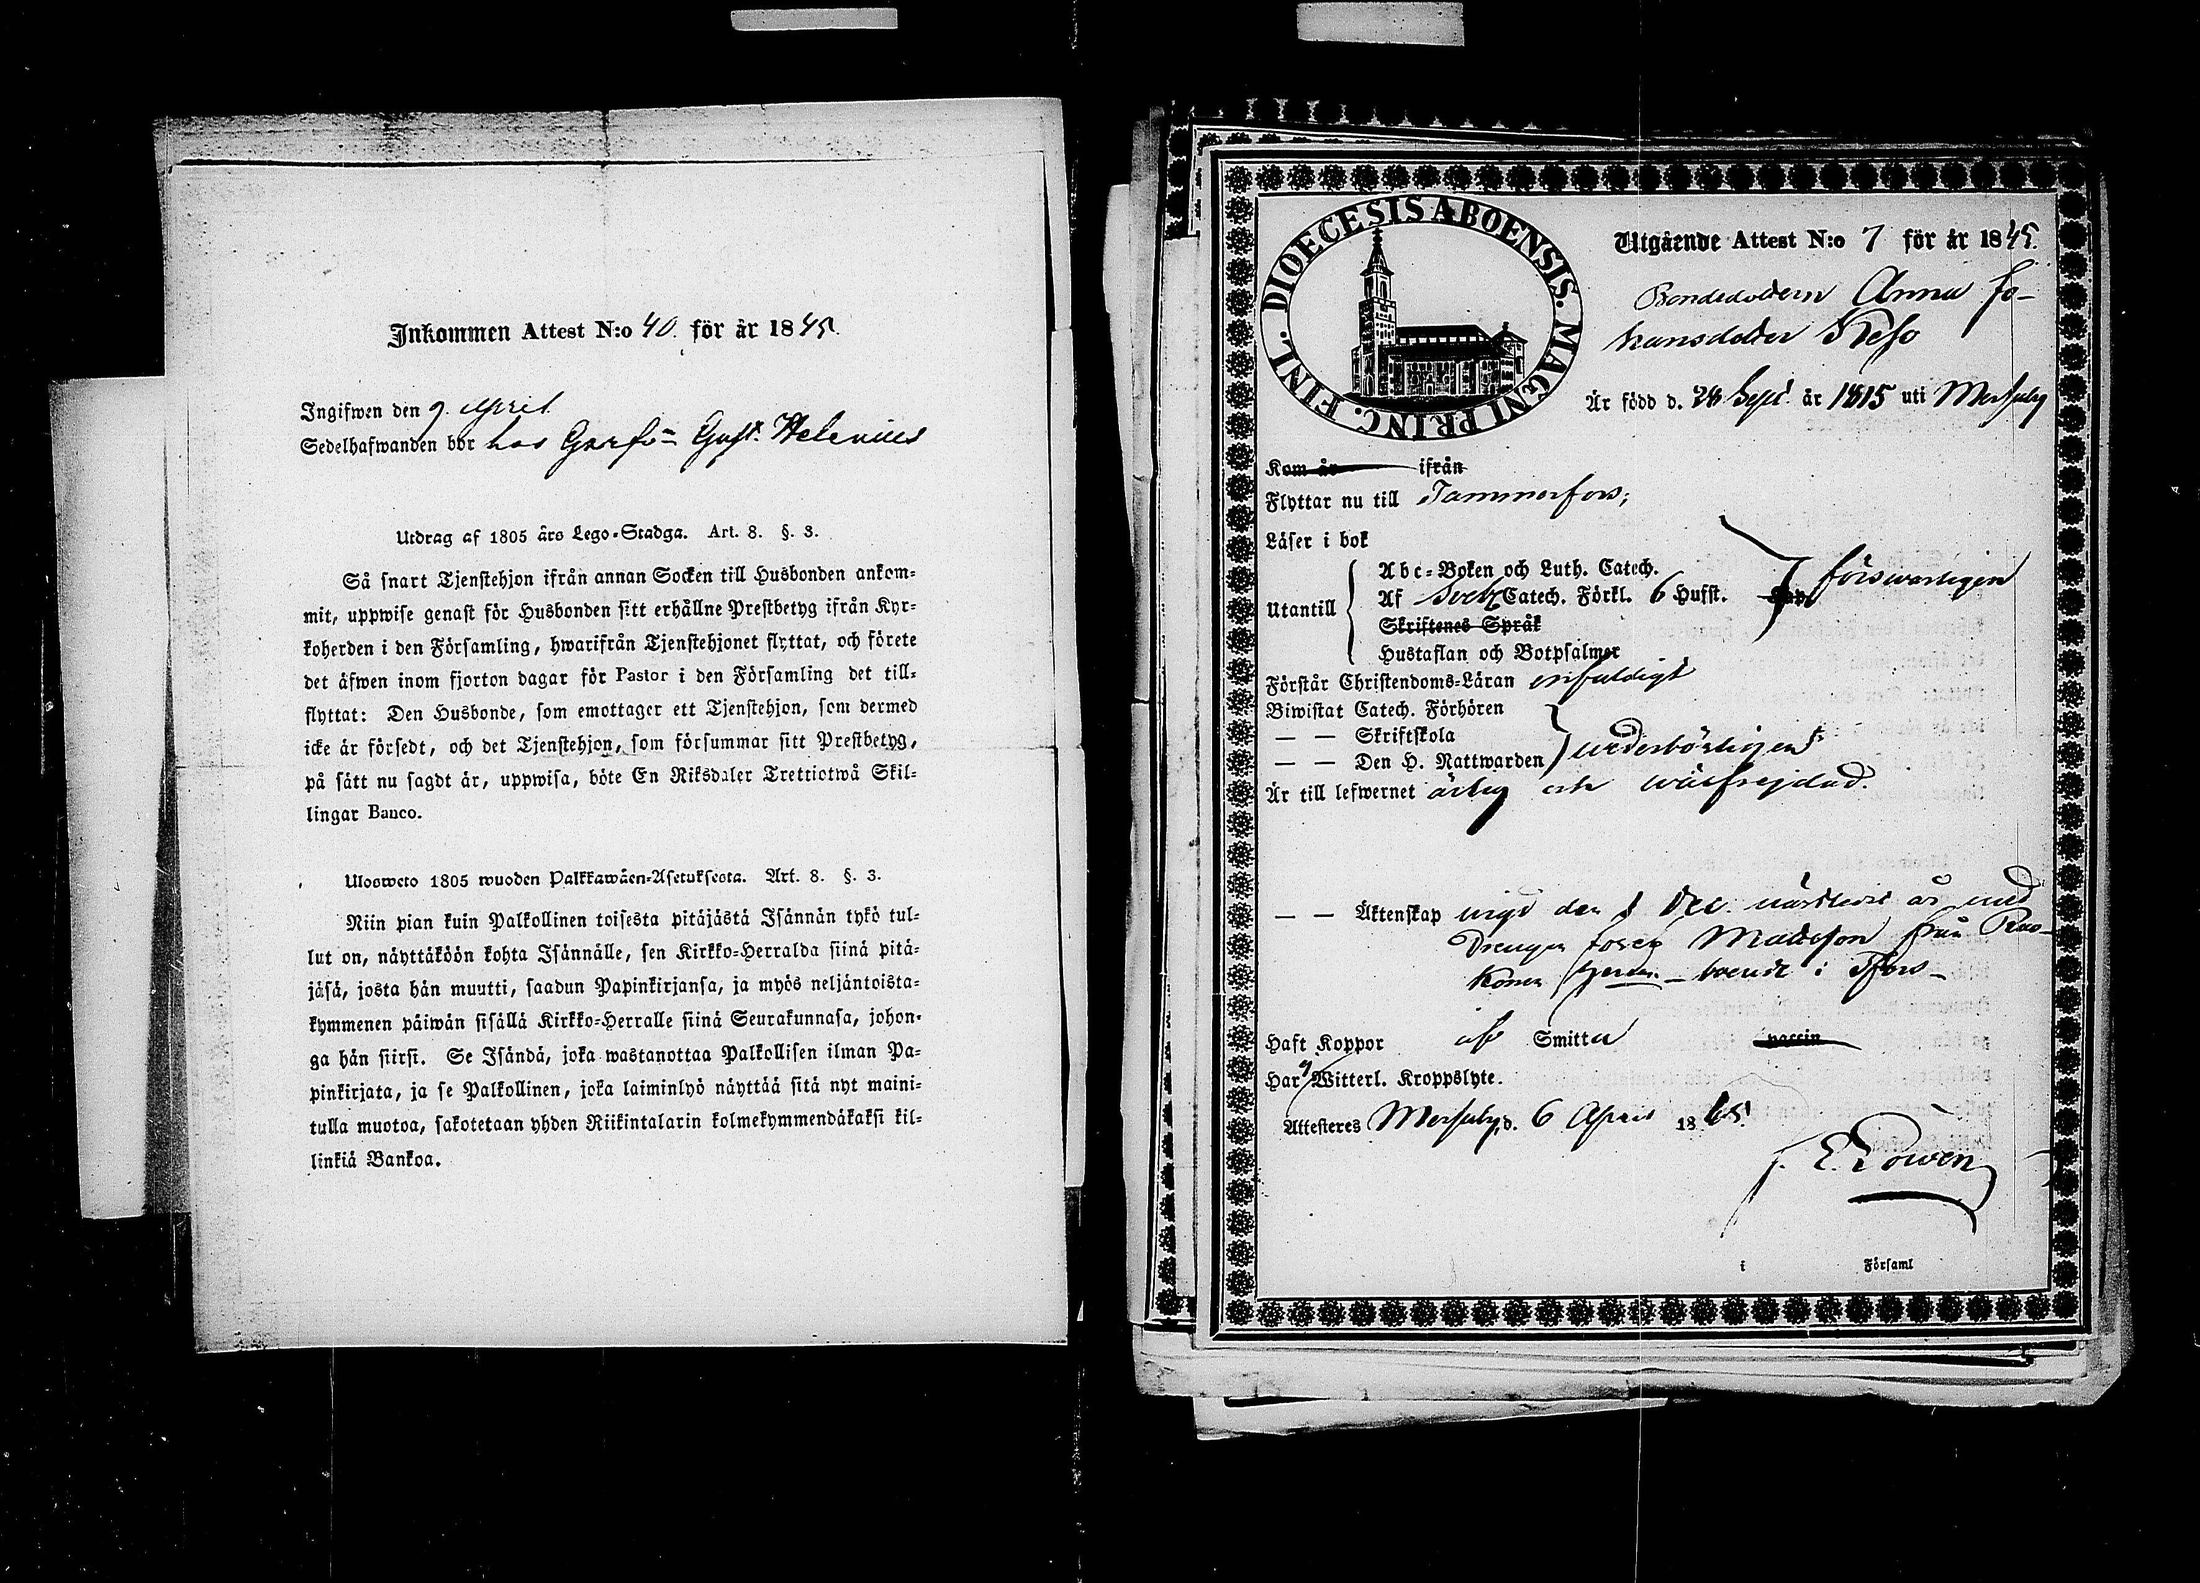 Inkommen Attest N:o 40. för år 1845.
Ingifwen den 9 April
Sedelhafwanden bor hos Garfv= Gust. Helenius
Utdrag af 1805 års Lego-Stadga. Art. 8. §. 3.
Så snart Tjenstehjon ifrån annan Socken till Husbonden ankom=
mit, uppwise genast för Husbonden sitt erhållne Prestbetyg ifrån Kyr=
koherden i den Församling, hwarifrån Tjenstehjonet flyttat, och förete
det äfwen inom fjorton dagar för Pastor i den Församling det till=
flyttat: Den Husbonde, som emottager ett Tjenstehjon, som dermed
icke är försedt, och det Tjenstehjon, som försummar sitt Prestbetyg,
på sätt nu sagdt är, uppwisa, böte En Riksdaler Trettiotwå Skil=
lingar Banco.
Ulosweto 1805 wuoden Palkkawäen=Asetuksesta. Art. 8. §. 3.
Niin pian kuin Palkollinen toisesta pitäjästä Isännän tykö tul=
lut on, näyttäköön kohta Isännälle, sen Kirkko=Herralda siinä pitä=
jäsä, josta hän muutti, saadun Papinkirjansa, ja myös neljäntoista=
kymmenen päiwän sisällä Kirkko=Herralle siinä Seurakunnasa, johon=
ga hän siirsi. Se Isändä, joka wastanottaa Palkollisen ilman Pa=
pinkirjata, ja se Palkollinen, joka laiminlyö näyttää sitä nyt maini=
tulla muotoa, sakotetaan yhden Riikintalarin kolmekymmendäkaksi kil=
linkiä Bankoa.
DIOECESIS ABOENSIS. MAGNI PRINC. FINL.
Utgående Attest N:o 7 för år 1845.
Bondedottern Anna Jo-
hansdotter Keso
Är född d. 28 Sept. år 1815 uti Messuby
Kom år ifrån
Flyttar nu till Tammerfors;
Läser i bok
Abc=Boken och Luth. Catech.
Utantill Af Sveb. Catech. Förkl. 6 Hufst. försvarligen
Skriftenes Språk
Hustaflan och Botpsalmer
Förstår Christendoms=Läran enfaldigt
Biwistat Catech. Förhören
— — Skriftskola
— — Den H. Nattwarden wederbörligen
Är till lefwernet ärlig och wälfrejdad.
— — Äktenskap wigd den 1 Dec. nästledit år med
Drengen Josep Mattsson från Ruo-
boende i Tfors
Haft Koppor af Smitta
Har Witterl. Kroppslyte.
Attesteres Messuby d. 6 April 1845
J. E. Lowen
i Församl